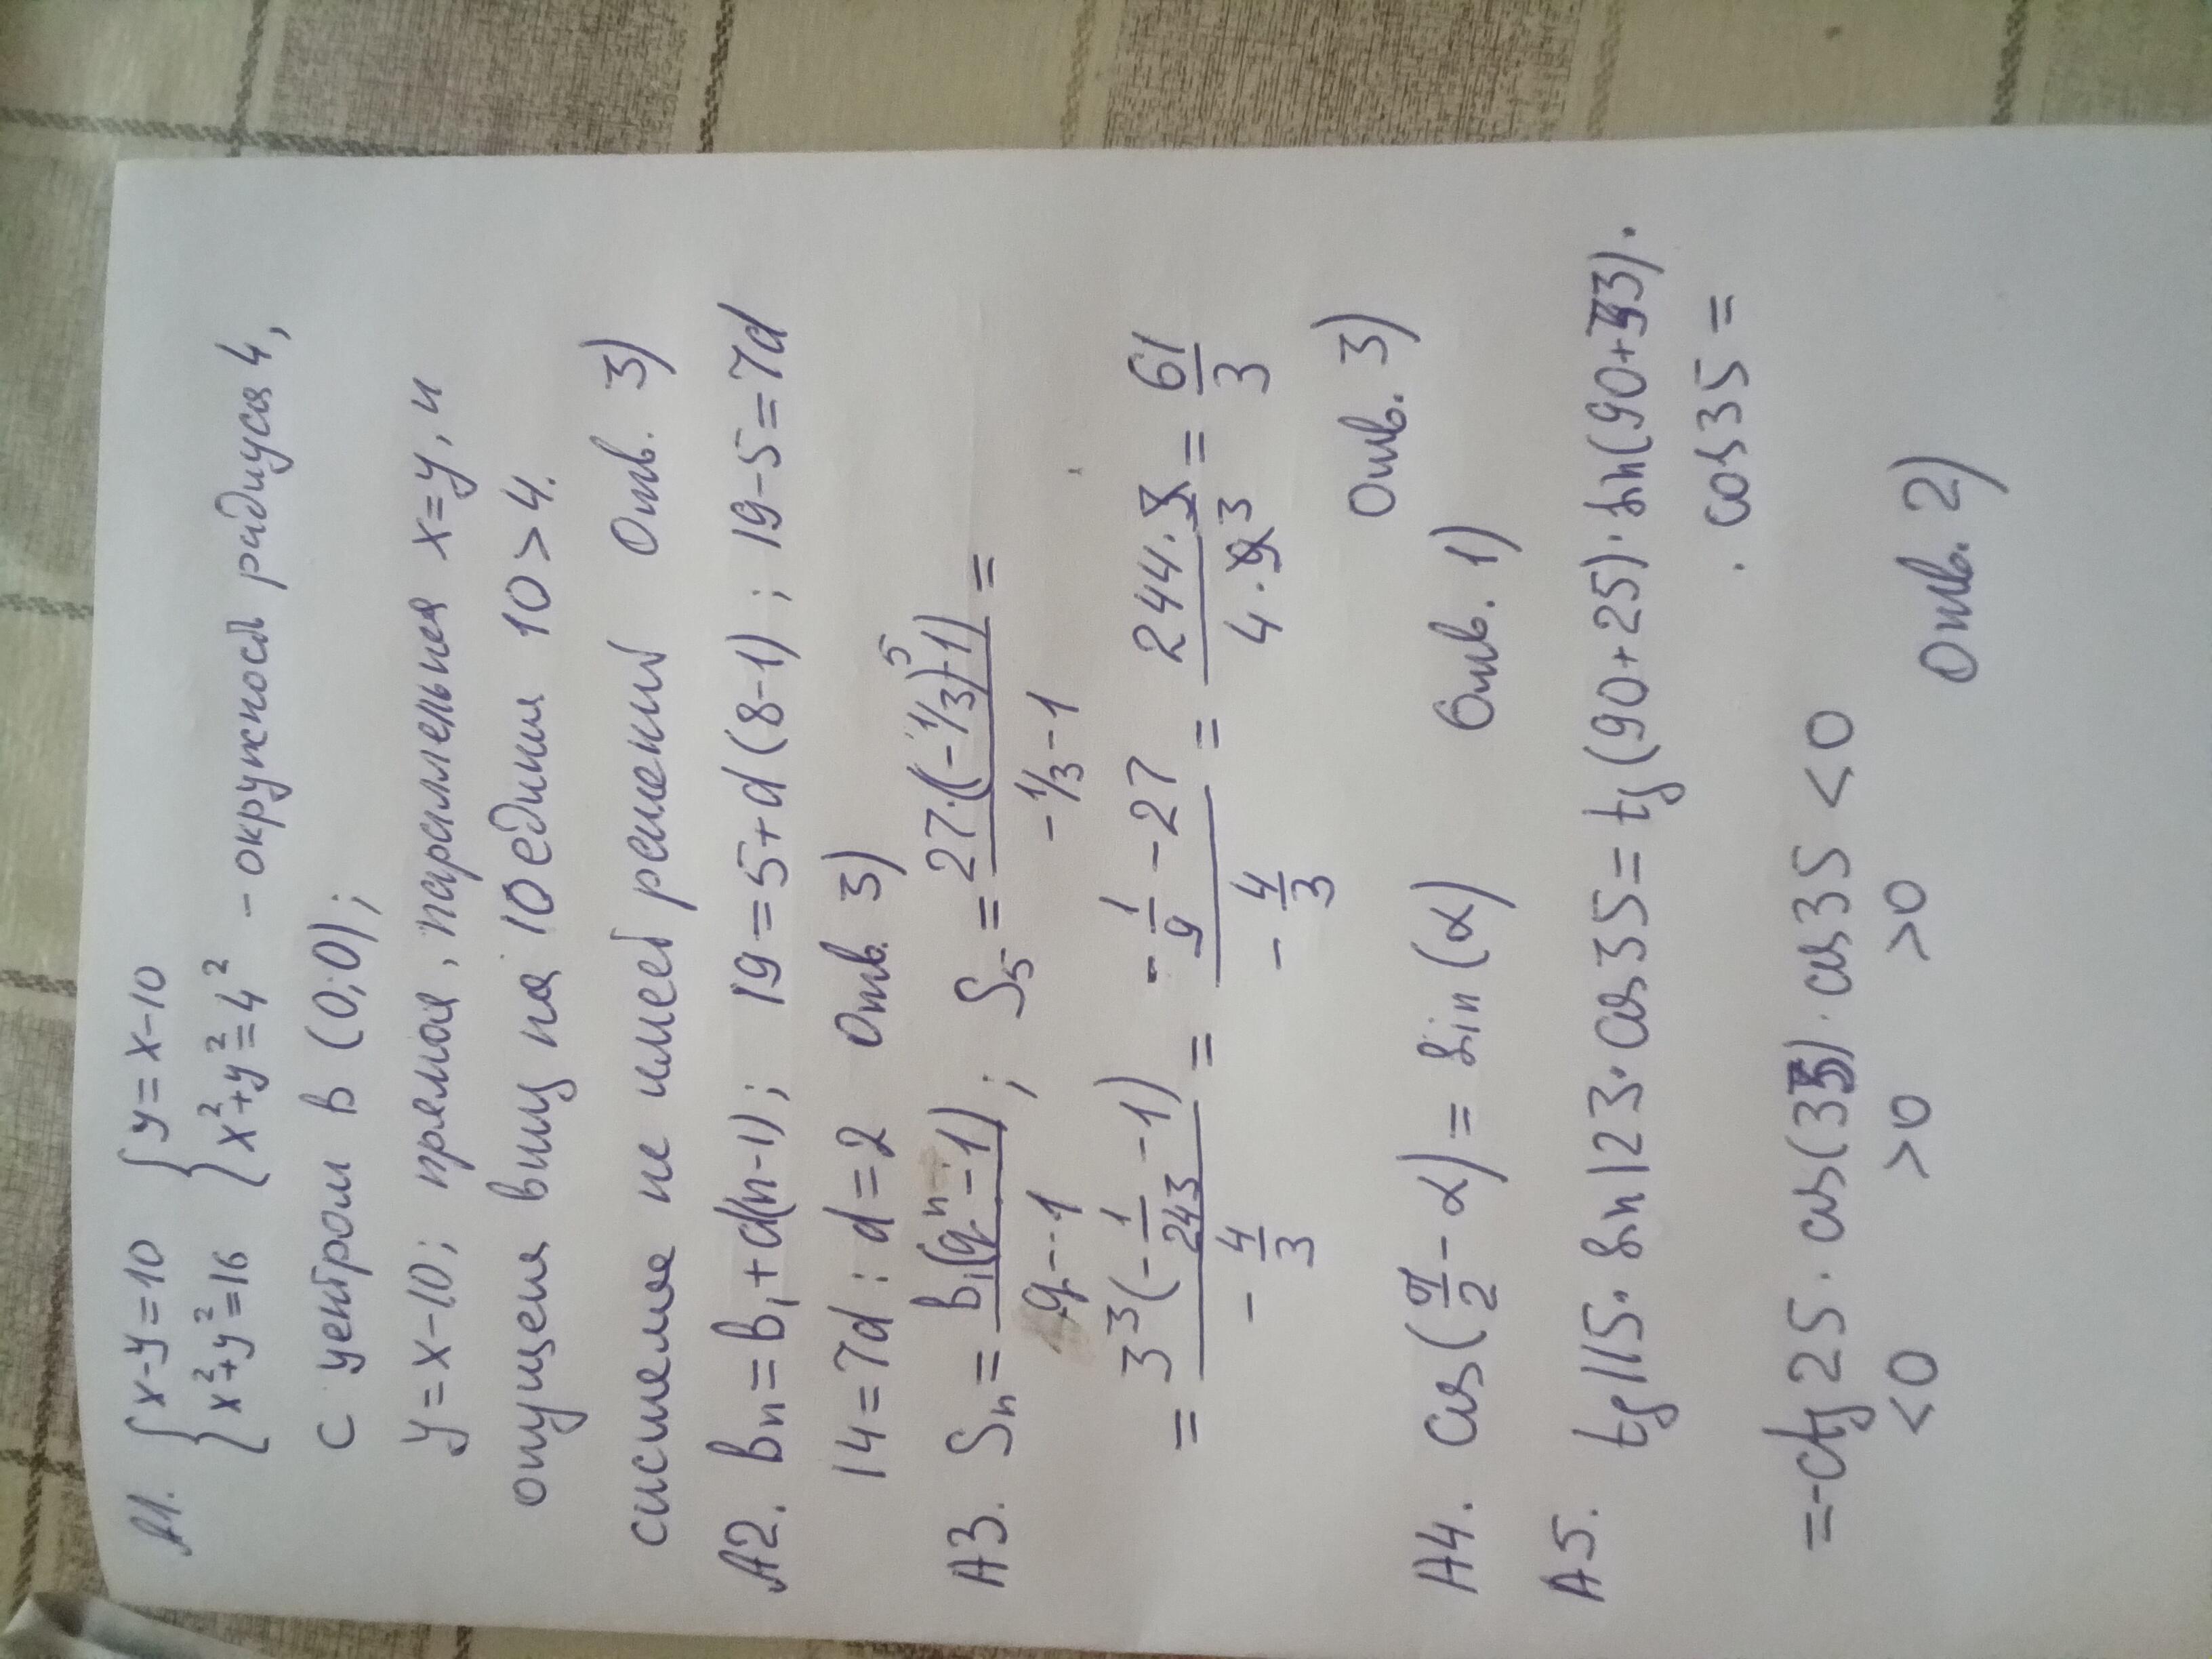 А1. { x-y=10 { y=x-10
{ x²+y²=16 { x²+y²=4² - окружность радиуса 4,
с центром в (0;0);
y=x-10; прямая, параллельная x=y, и
опущена вниз на 10 единиц 10>4.
система не имеет решений Отв. 3)
А2. вn=в1+d(n-1); 19=5+d(8-1); 19-5=7d
14=7d; d=2 Отв. 3)
А3. Sn= в1(qⁿ-1)/q-1; S5= 27·((-1/3)⁵+1)/-1/3-1 =
= 3³(-1/243 -1)/-4/3 = -1/9 -27/-4/3 = 244·3/4·9 3 = 61/3
Отв. 3)
А4. cos(π/2-α)=sin(α) Отв. 1)
А5. tg115·sin123·cos35=tg(90+25)·sin(90+33)·
·cos35=
=-ctg25·cos(33)·cos35<0
<0 >0 >0
Отв. 2)